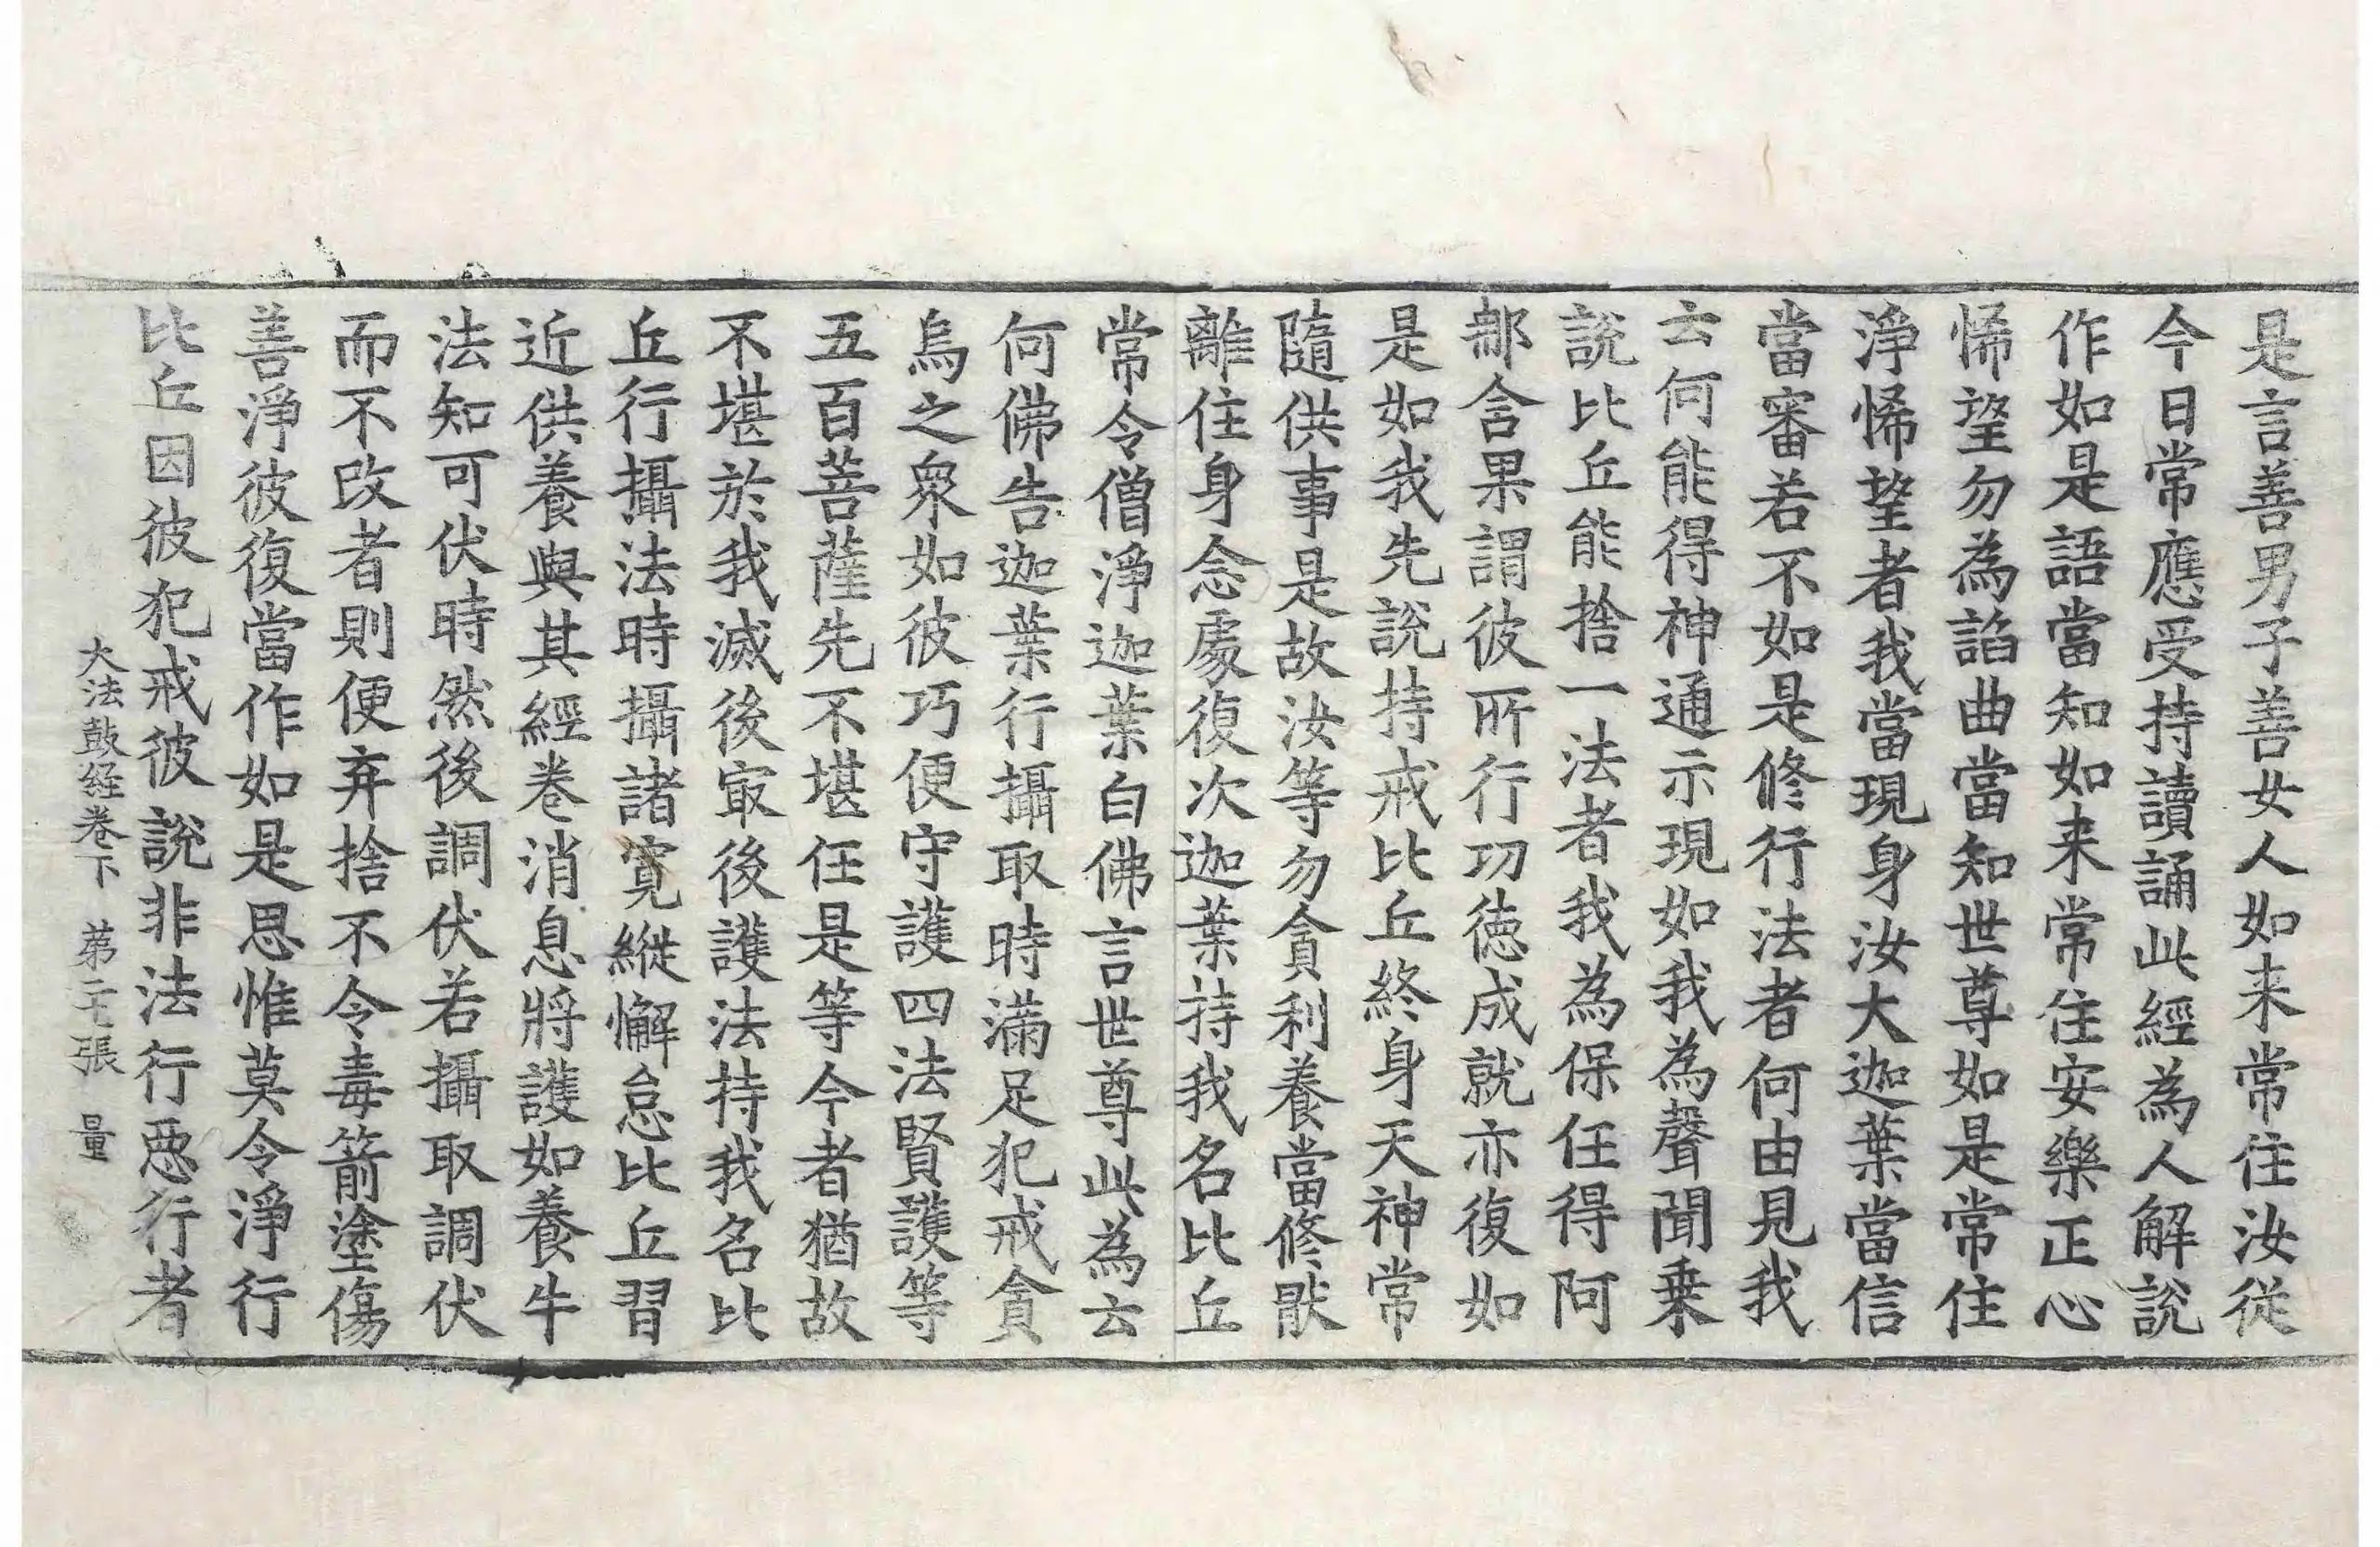 是言善男子善女人如来常住汝從
今日常應受持讀誦此經為人解說
作如是語當知如来常住安樂正心
悕望勿為諂曲當知世尊如是常住
淨悕望者我當現身汝大迦葉當信
當審若不如是修行法者何由見我
云何能得神通示現如我為聲聞乗
說比丘能捨一法者我為保任得阿
那含果謂彼所行功德成就亦復如
是如我先說持戒比丘終身天神常
隨供事是故汝等勿貪利養當修猒
離住身念處復次迦葉持我名比丘
常令僧淨迦葉白佛言世尊此為云
何佛告迦葉行攝取時滿足犯戒貪
烏之衆如彼巧便守護四法賢護等
五百菩薩先不堪任是等今者猶故
不堪於我滅後㝡後護法持我名比
丘行攝法時攝諸寬縱懈怠比丘習
近供養與其經卷消息將護如養牛
法知可伏時然後調伏若攝取調伏
而不改者則便弃捨不令毒箭塗傷
善淨彼復當作如是思惟莫令淨行
比丘因彼犯戒彼說非法行惡行者
大法鼓経卷下 苐二張 量